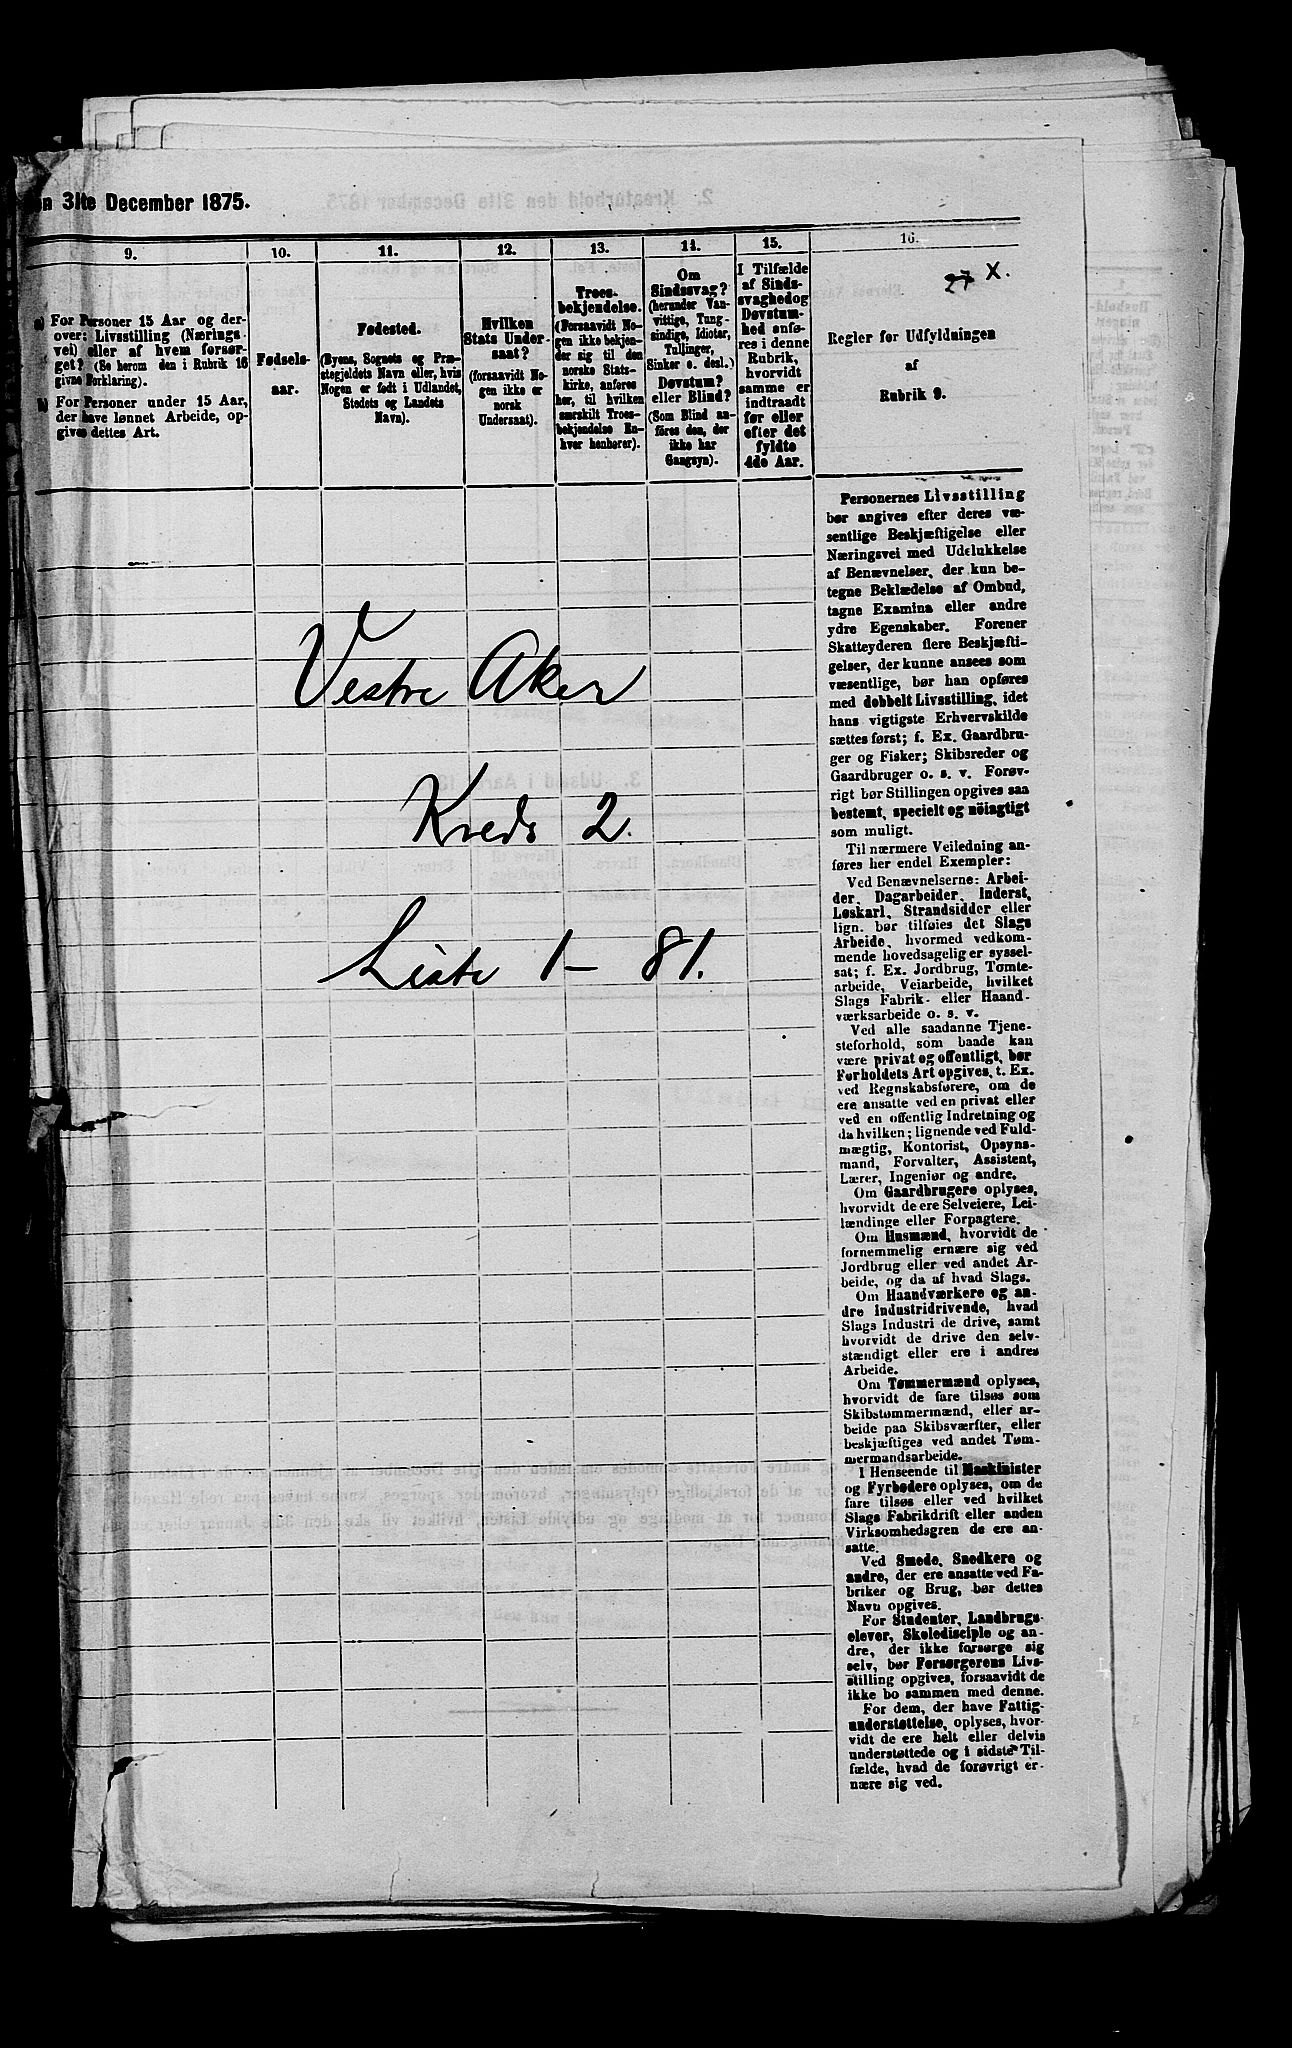 31te December 1875.
9.
10.
11.
12.
13.
14.
15.
16.
27 X.
a) For Personer 15 Aar og der-
over: Livsstilling (Nærings-
vei) eller af hvem forsør-
get? (Se herom den i Rubrik 16
givne Forklaring).
b) For Personer under 15 Aar,
der have lønnet Arbeide, op-
gives dettes Art.
Fødsels-
aar.
Fødested.
(Byens, Sognets og Præ-
stegjeldets Navn eller, hvis
Nogen er født i Udlandet,
Stedets og Landets
Navn).
Hvilken
Stats Under-
saat?
(forsaavidt No-
gen ikke er
norsk
Undersaat).
Troes-
bekjendelse.
(Forsaavidt No-
gen ikke bekjen-
der sig til den
norske Stats-
kirke, anføres
her, til hvilken
særskilt Troes-
bekjendelse En-
hver henhører).
Om
Sindssvag?
(herunder Van-
vittige, Tung-
sindige, Idioter,
Tullinger,
Sinker o. desl.)
Døvstum?
eller Blind?
(Som Blind an-
føres den, der
ikke har
Gangsyn).
I Tilfælde
af Sinds-
svaghed og
Døvstum-
hed anfø-
res i denne
Rubrik,
hvorvidt
samme er
indtraadt
før eller
efter det
fyldte
4de Aar.
Regler for Udfyldningen
af
Rubrik 9.
Vestre Aker
Kreds 2.
Liste 1 - 81.
Personernes Livsstilling
bør angives efter deres væ-
sentlige Beskjæftigelse eller
Næringsvei med Udelukkelse
af Benævnelser, der kun be-
tegne Beklædelse af Ombud,
tagne Examina eller andre
ydre Egenskaber. Forener
Skatteyderen flere Beskjæfti-
gelser, der kunne ansees som
væsentlige, bør han opføres
med dobbelt Livsstilling, idet
hans vigtigste Erhvervskilde
sættes først; f. Ex. Gaardbru-
ger og Fisker; Skibsreder og
Gaardbruger o. s. v. Forøv-
rigt bør Stillingen opgives saa
bestemt, specielt og nöiagtigt
som muligt.
Til nærmere Veiledning an-
føres her endel Exempler:
Ved Benævnelserne: Arbei-
der, Dagarbeider, Inderst,
Løskarl, Strandsidder eller
lign. bør tilføies det Slags
Arbeide, hvormed vedkom-
mende hovedsagelig er syssel-
sat; f. Ex. Jordbrug, Tømte-
arbeide, Veiarbeide, hvilket
Slags Fabrik- eller Haand-
værksarbeide o. s. v.
Ved alle saadanne Tjene-
steforhold, som baade kan
være privat og offentligt, bør
Forholdets Art opgives, t. Ex.
ved Regnskabsførere, om de
ere ansatte ved en privat eller
ved en offentlig Indretning og
da hvilken; lignende ved Fuld-
mægtig, Kontorist, Opsyns-
mand, Forvalter, Assistent,
Lærer, Ingeniør og andre.
Om Gaardbrugere oplyses,
hvorvidt de ere Selveiere, Lei-
lændinge eller Forpagtere.
Om Husmænd, hvorvidt de
fornemmelig ernære sig ved
Jordbrug eller ved andet Ar-
beide, og da af hvad Slags.
Om Haandværkere og an-
dre Industridrivende, hvad
Slags Industri de drive, samt
hvorvidt de drive den selv-
stændigt eller ere i andres
Arbeide.
Om Tømmermænd oplyses,
hvorvidt de fare tilsøs som
Skibstømmermænd, eller ar-
beide paa Skibsværfter, eller
beskjæftiges ved andet Tøm-
mermandsarbeide.
I Henseende til Maskinister
og Fyrbødere oplyses, om de
fare tilsøs eller ved hvilket
Slags Fabrikdrift eller anden
Virksomhedsgren de ere an-
satte.
Ved Smede, Snedkere og
andre, der ere ansatte ved Fa-
briker og Brug, bør dettes
Navn opgives.
For Studenter, Landbrugs-
elever, Skoledisciple og an-
dre, der ikke forsørge sig
selv, bør Forsørgerens Livs-
stilling opgives, forsaavidt de
ikke bo sammen med denne.
For dem, der have Fattig-
understøttelse, oplyses, hvor-
vidt de ere helt eller delvis
understøttede og i sidste Til-
fælde, hvad de forøvrigt er-
nære sig ved.